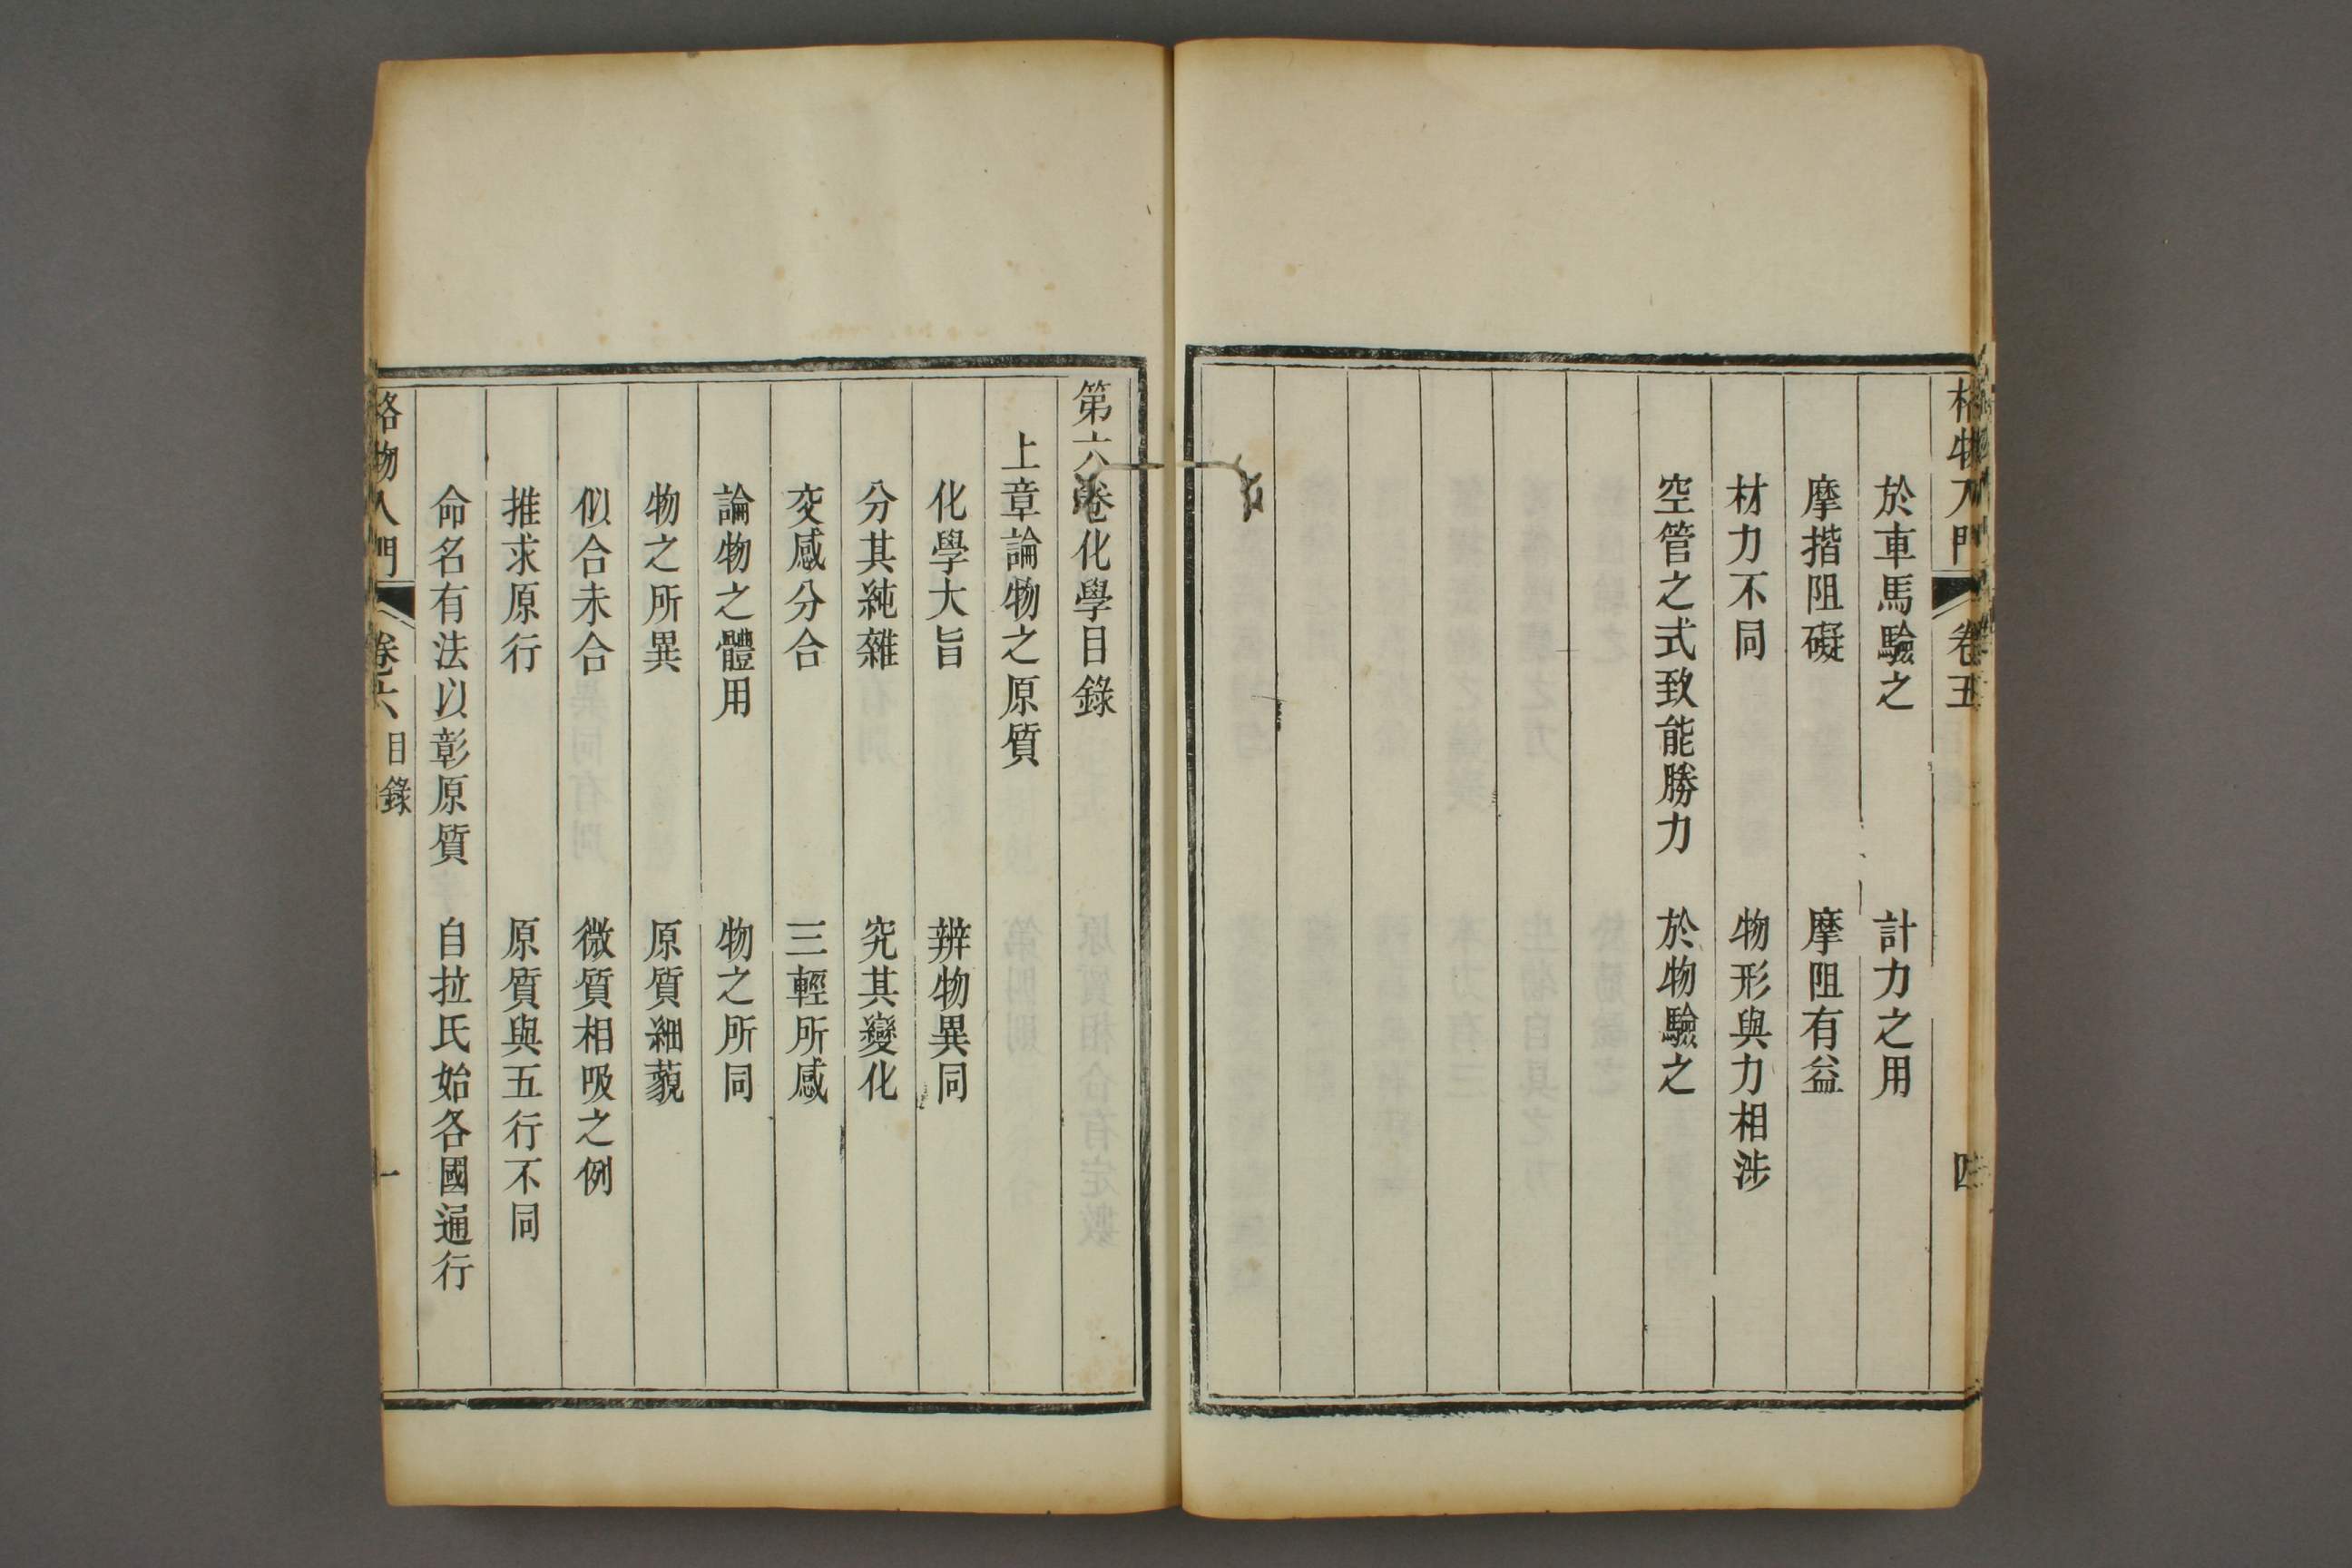 格物入門 卷五 四
於車馬驗之 計力之用
摩揩阻礙 摩阻有益
材力不同 物形與力相涉
空管之式致能勝力 於物驗之
第六卷化學目錄
上章論物之原質
化學大旨 辨物異同
分其純雜 究其變化
交感分合 三輕所感
論物之體用 物之所同
物之所異 原質細藐
似合未合 微質相吸之例
推求原行 原質與五行不同
命名有法以彰原質 自拉氏始各國通行
格物入門 卷六 目錄 一